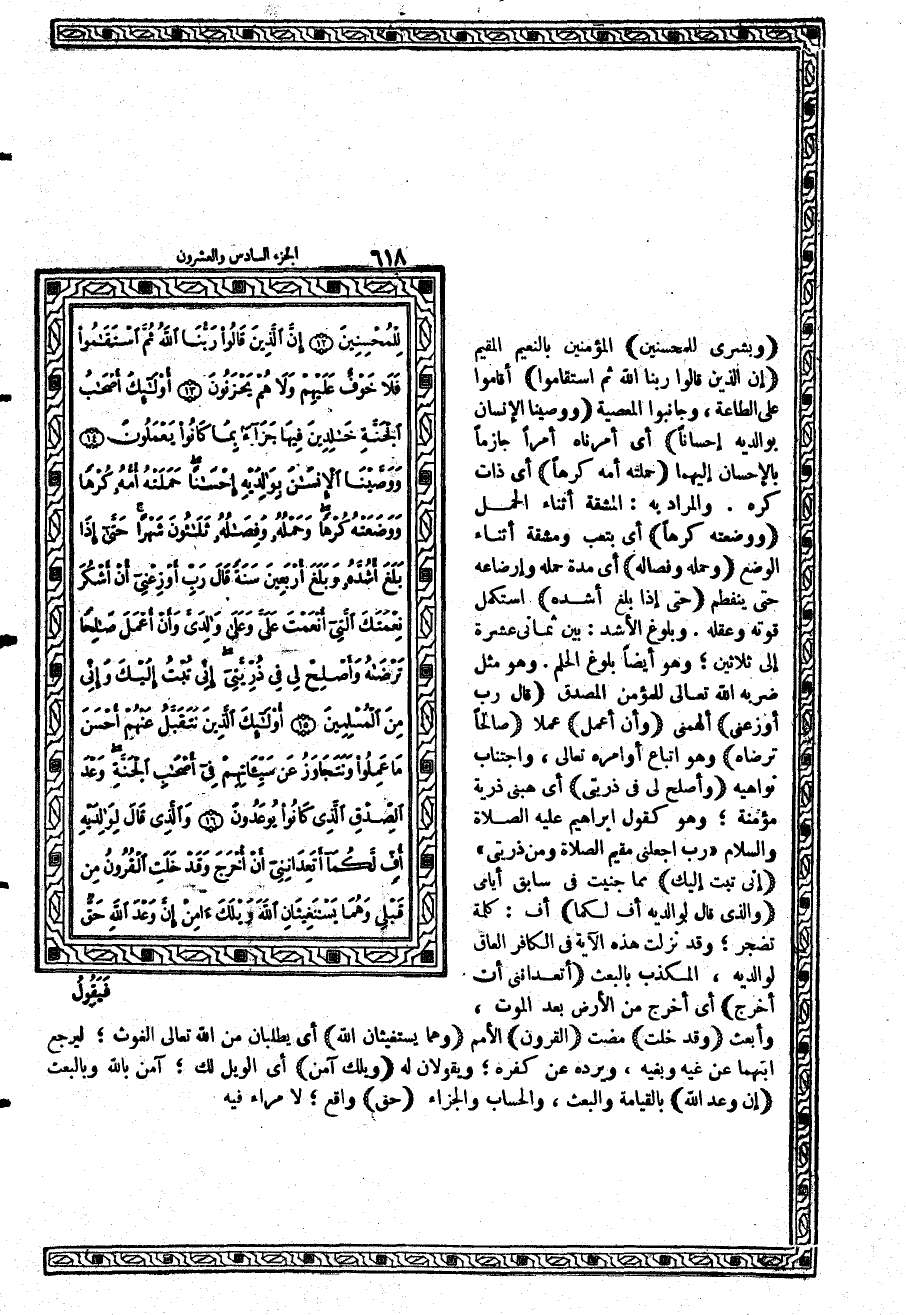 ٦١٨
الجزء السادس والعشرون
لِلْمُحْسِنِينَ ١٢ إِنَّ ٱلَّذِينَ قَالُوا۟ رَبُّنَا ٱللَّهُ ثُمَّ ٱسْتَقَـٰمُوا۟
فَلَا خَوْفٌ عَلَيْهِمْ وَلَا هُمْ يَحْزَنُونَ ١٣ أُو۟لَـٰٓئِكَ أَصْحَـٰبُ
ٱلْجَنَّةِ خَـٰلِدِينَ فِيهَا جَزَآءًۢ بِمَا كَانُوا۟ يَعْمَلُونَ ١٤
وَوَصَّيْنَا ٱلْإِنسَـٰنَ بِوَٰلِدَيْهِ إِحْسَـٰنًا ۖ حَمَلَتْهُ أُمُّهُۥ كُرْهًا
وَوَضَعَتْهُ كُرْهًا ۖ وَحَمْلُهُۥ وَفِصَـٰلُهُۥ ثَلَـٰثُونَ شَهْرًا ۚ حَتَّىٰٓ إِذَا
بَلَغَ أَشُدَّهُۥ وَبَلَغَ أَرْبَعِينَ سَنَةً قَالَ رَبِّ أَوْزِعْنِىٓ أَنْ أَشْكُرَ
نِعْمَتَكَ ٱلَّتِىٓ أَنْعَمْتَ عَلَىَّ وَعَلَىٰ وَٰلِدَىَّ وَأَنْ أَعْمَلَ صَـٰلِحًا
تَرْضَىٰهُ وَأَصْلِحْ لِى فِى ذُرِّيَّتِىٓ ۖ إِنِّى تُبْتُ إِلَيْكَ وَإِنِّى
مِنَ ٱلْمُسْلِمِينَ ١٥ أُو۟لَـٰٓئِكَ ٱلَّذِينَ نَتَقَبَّلُ عَنْهُمْ أَحْسَنَ
مَا عَمِلُوا۟ وَنَتَجَاوَزُ عَن سَيِّـَٔاتِهِمْ فِىٓ أَصْحَـٰبِ ٱلْجَنَّةِ ۖ وَعْدَ
ٱلصِّدْقِ ٱلَّذِى كَانُوا۟ يُوعَدُونَ ١٦ وَٱلَّذِى قَالَ لِوَٰلِدَيْهِ
أُفٍّ لَّكُمَآ أَتَعِدَانِنِىٓ أَنْ أُخْرَجَ وَقَدْ خَلَتِ ٱلْقُرُونُ مِن
قَبْلِى وَهُمَا يَسْتَغِيثَانِ ٱللَّهَ وَيْلَكَ ءَامِنْ إِنَّ وَعْدَ ٱللَّهِ حَقٌّ
فَيَقُولُ
(وبشرى للمحسنين) المؤمنين بالنعيم المقيم
(إن الذين قالوا ربنا الله ثم استقاموا) أقاموا
على الطاعة، وجانبوا المعصية (ووصينا الإنسان
بوالديه إحساناً) أى أمرناه أمراً جازماً
بالإحسان إليهما (حملته أمه كرهاً) أى ذات
كره. والمراد به: المشقة أثناء الحمل
(ووضعته كرهاً) أى بتعب ومشقة أثناء
الوضع (وحمله وفصاله) أى مدة حمله وإرضاعه
حتى ينفطم (حتى إذا بلغ أشده) استكمل
قوته وعقله. وبلوغ الأشد: بين ثمانى عشرة
إلى ثلاثين؛ وهو أيضاً بلوغ الحلم. وهو مثل
ضربه الله تعالى للمؤمن المصدق (قال رب
أوزعنى) ألهمنى (وأن أعمل) عملا (صالحاً
ترضاه) وهو اتباع أوامره تعالى، واجتناب
نواهيه (وأصلح لى فى ذريتى) أى هبنى ذرية
مؤمنة؛ وهو كقول ابراهيم عليه الصلاة
والسلام «رب اجعلنى مقيم الصلاة ومن ذريتى»
(إنى تبت إليك) مما جنيت فى سابق أيامى
(والذى قال لوالديه أف لكما) أف: كلمة
تضجر؛ وقد نزلت هذه الآية فى الكافر العاق
لوالديه، المكذب بالبعث (أتعداننى أن
أخرج) أى أخرج من الأرض بعد الموت،
وأبعث (وقد خلت) مضت (القرون) الأمم (وهما يستغيثان الله) أى يطلبان من الله تعالى الغوث؛ ليرجع
ابنهما عن غيه وبغيه، ويرده عن كفره؛ ويقولان له (ويلك آمن) أى الويل لك؛ آمن بالله وبالبعث
(إن وعد الله) بالقيامة والبعث، والحساب والجزاء (حق) واقع؛ لا مراء فيه